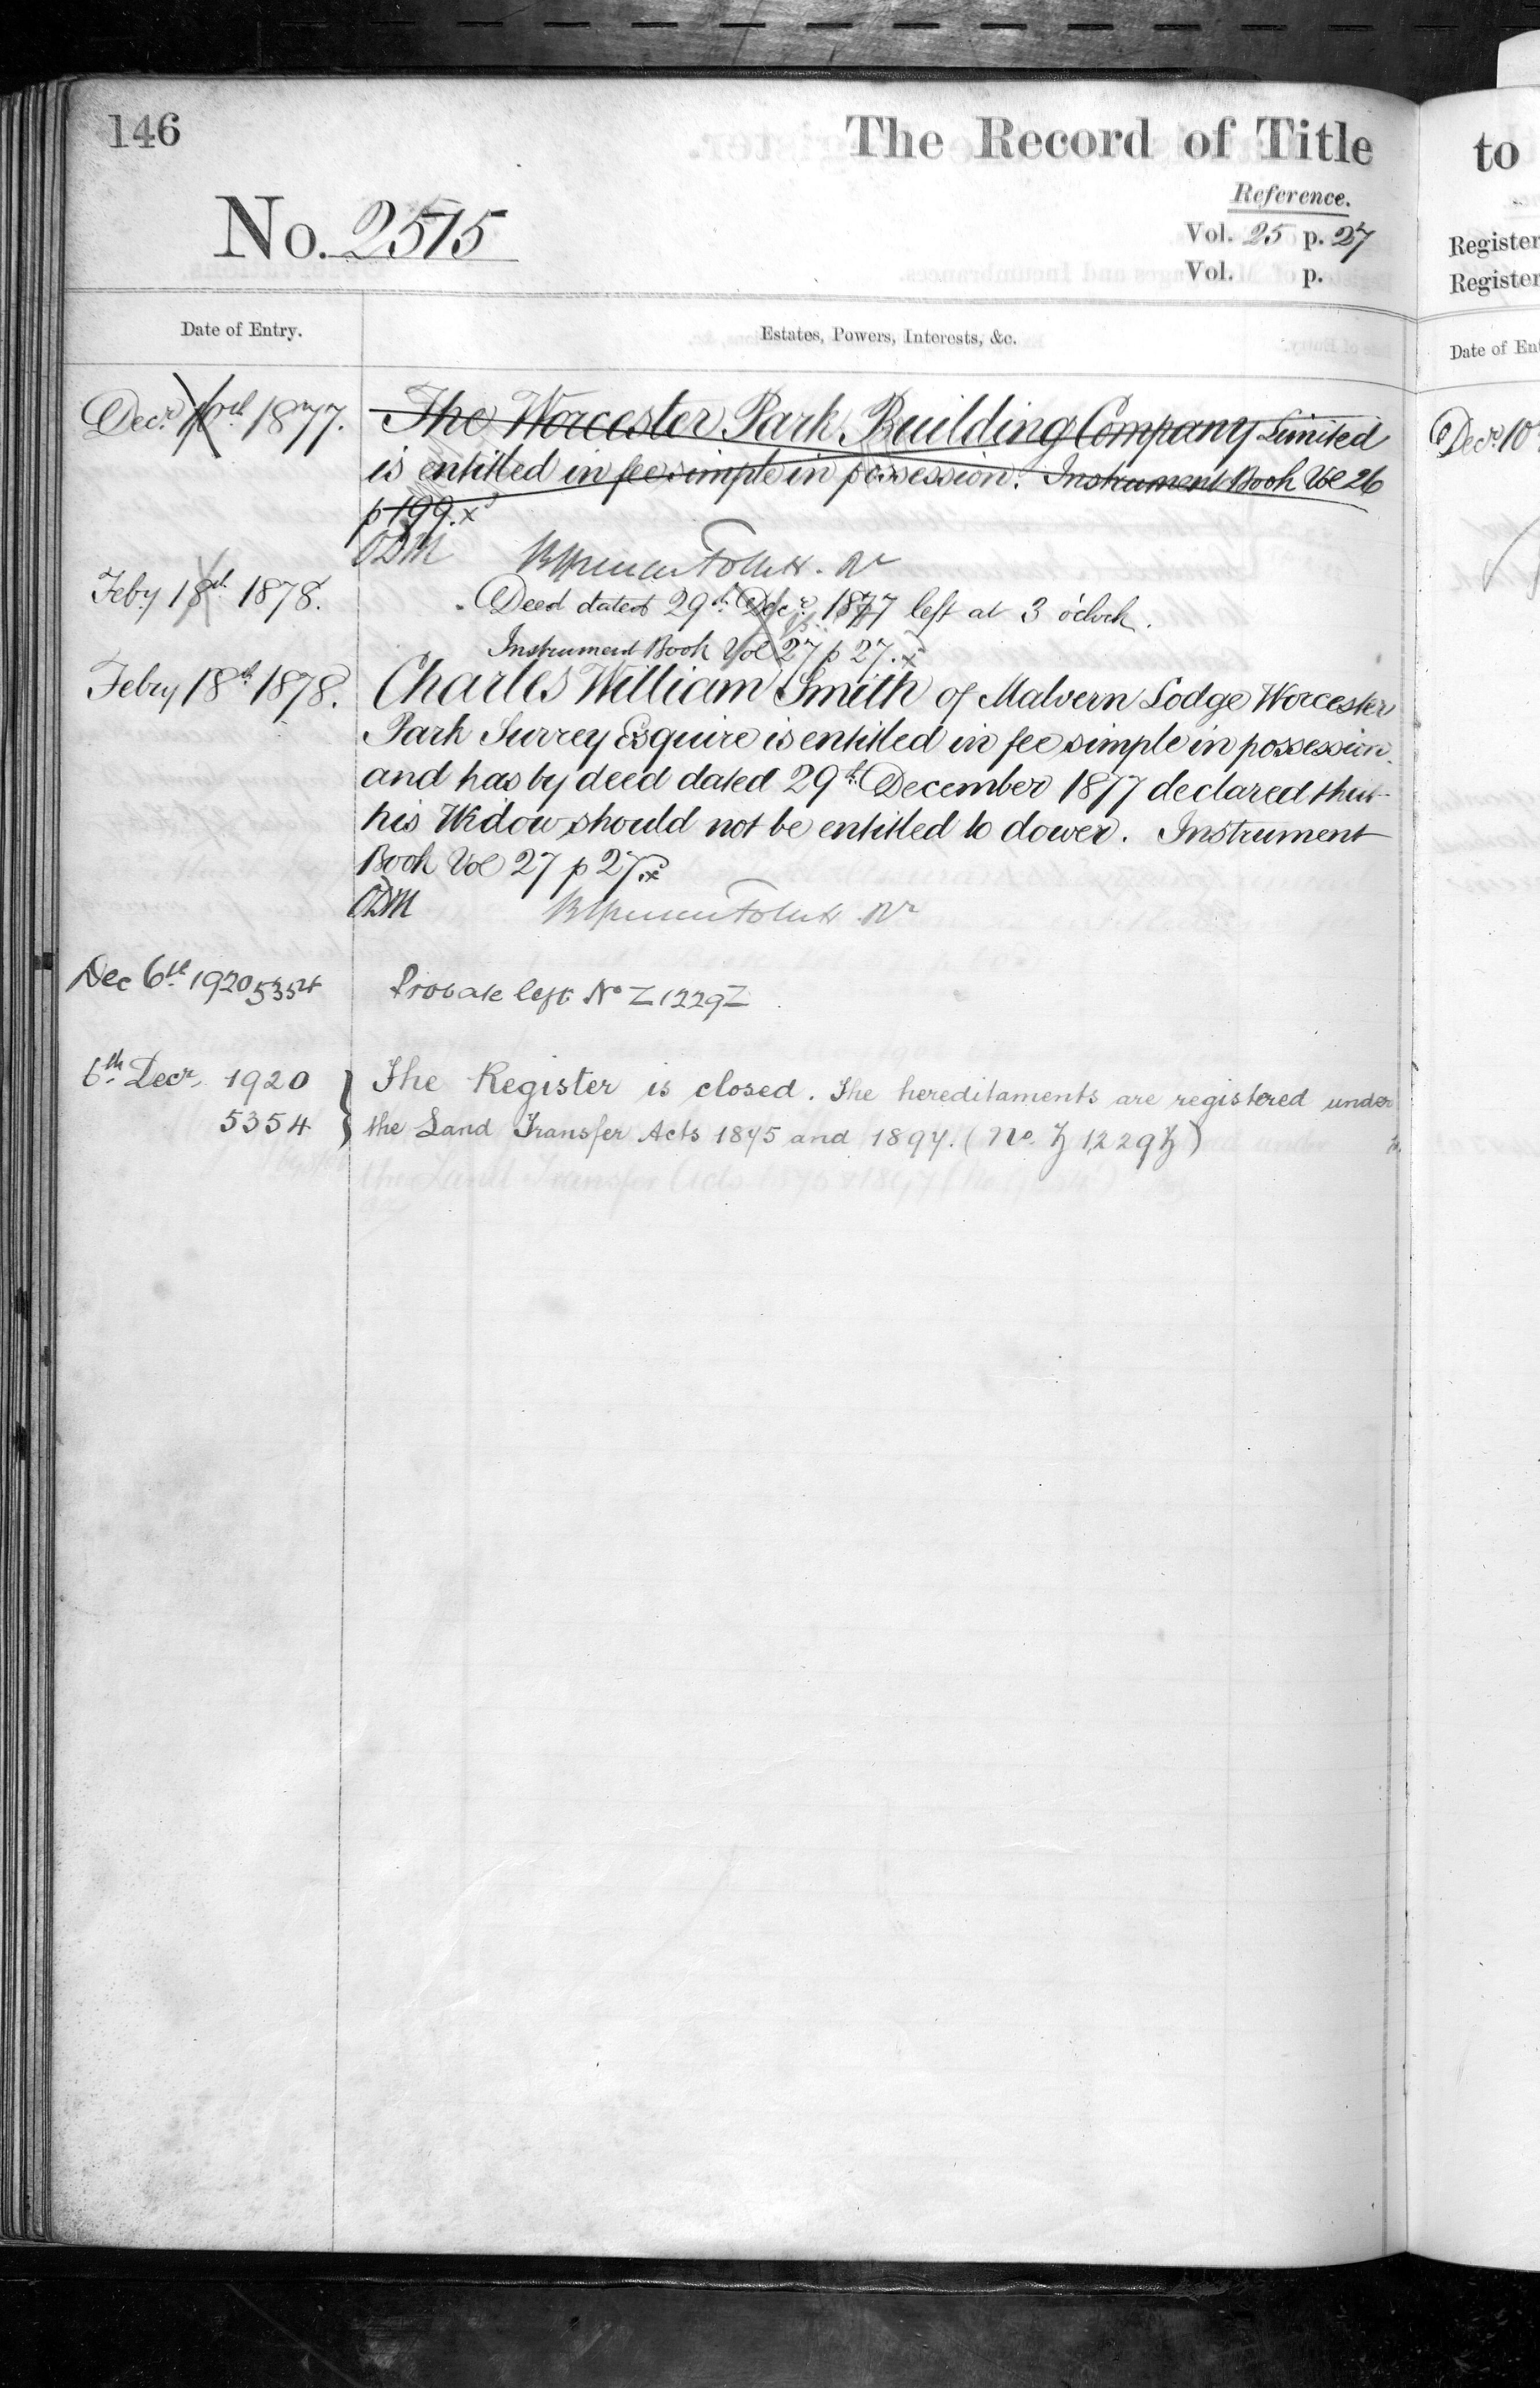 146
The Record of Title
to
Reference.
No. 2515
Vol. 25 p. 27
Register
Vol. p.
Register
Date of Entry.
Estates, Powers, Interests, &c.
Date of Ent
Decr. 10th 1877.
The Worcester Park Building Company Limited
Decr. 10
is entitled in fee simple in possession. Instrument Book Vol 26
p 199. x
ODM
Feby 18th 1878.
Deed dated 29th Decr. 1877 left at 3 o'clock.
Instrument Book Vol 27 p 27. x
Febry 18th 1878.
Charles William Smith of Malvern Lodge Worcester
Park Surrey Esquire is entitled in fee simple in possession
and has by deed dated 29th December 1877 declared that
his Widow should not be entitled to dower. Instrument
Book Vol 27 p 27. x
ODM
Dec 6th 1920 5354
Probate left No Z1229Z
6th Decr. 1920
The Register is closed. The hereditaments are registered under
5354
the Land Transfer Acts 1875 and 1897. (No. Z 1229Z)